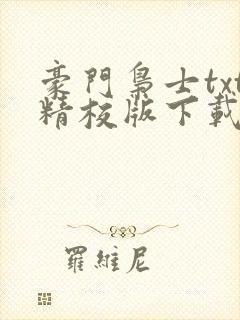 豪門梟士txt
精校版下載
羅維尼